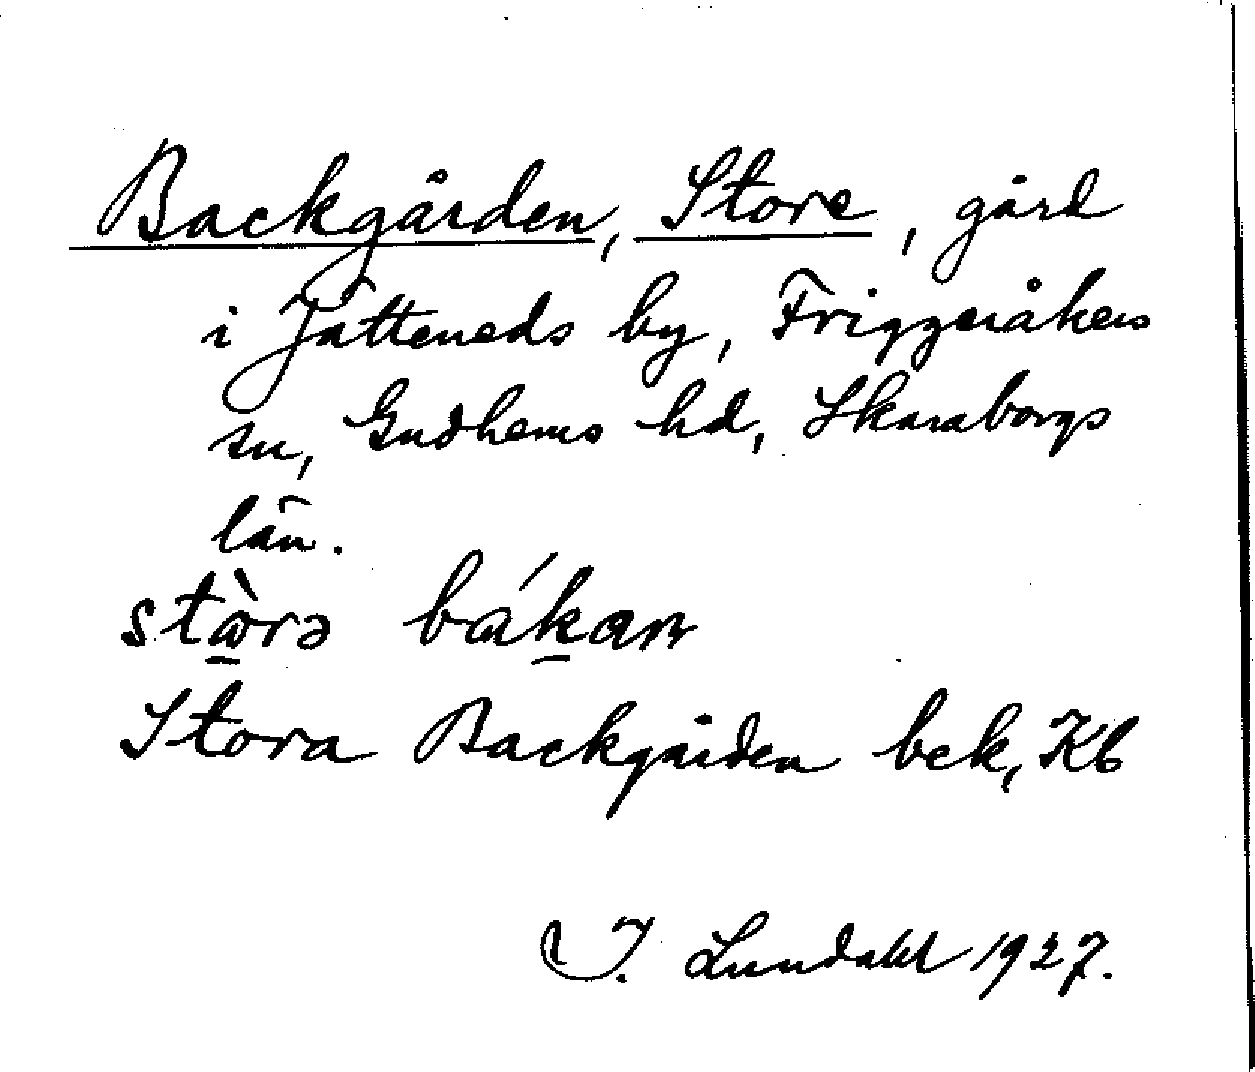 Backgården, Store, gård
i Jätteneds by, Friggeråkers
sn, Gudhems hd, Skaraborgs
län.
stὼ̱rə báḵan
Stora Backgården bek, Kb
I. Lundahl 1927.